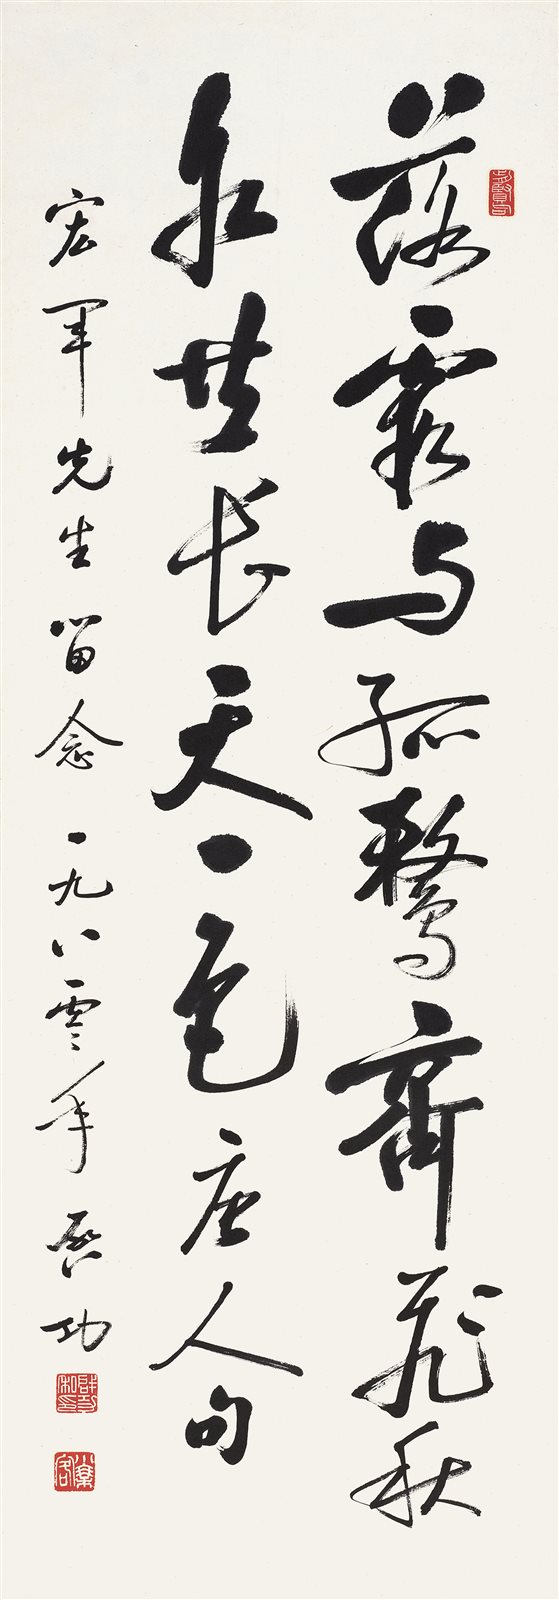 落霞与孤鹜齊飛秋
水共长天一色唐人句
宏軍先生留念 一九八零年 啓功